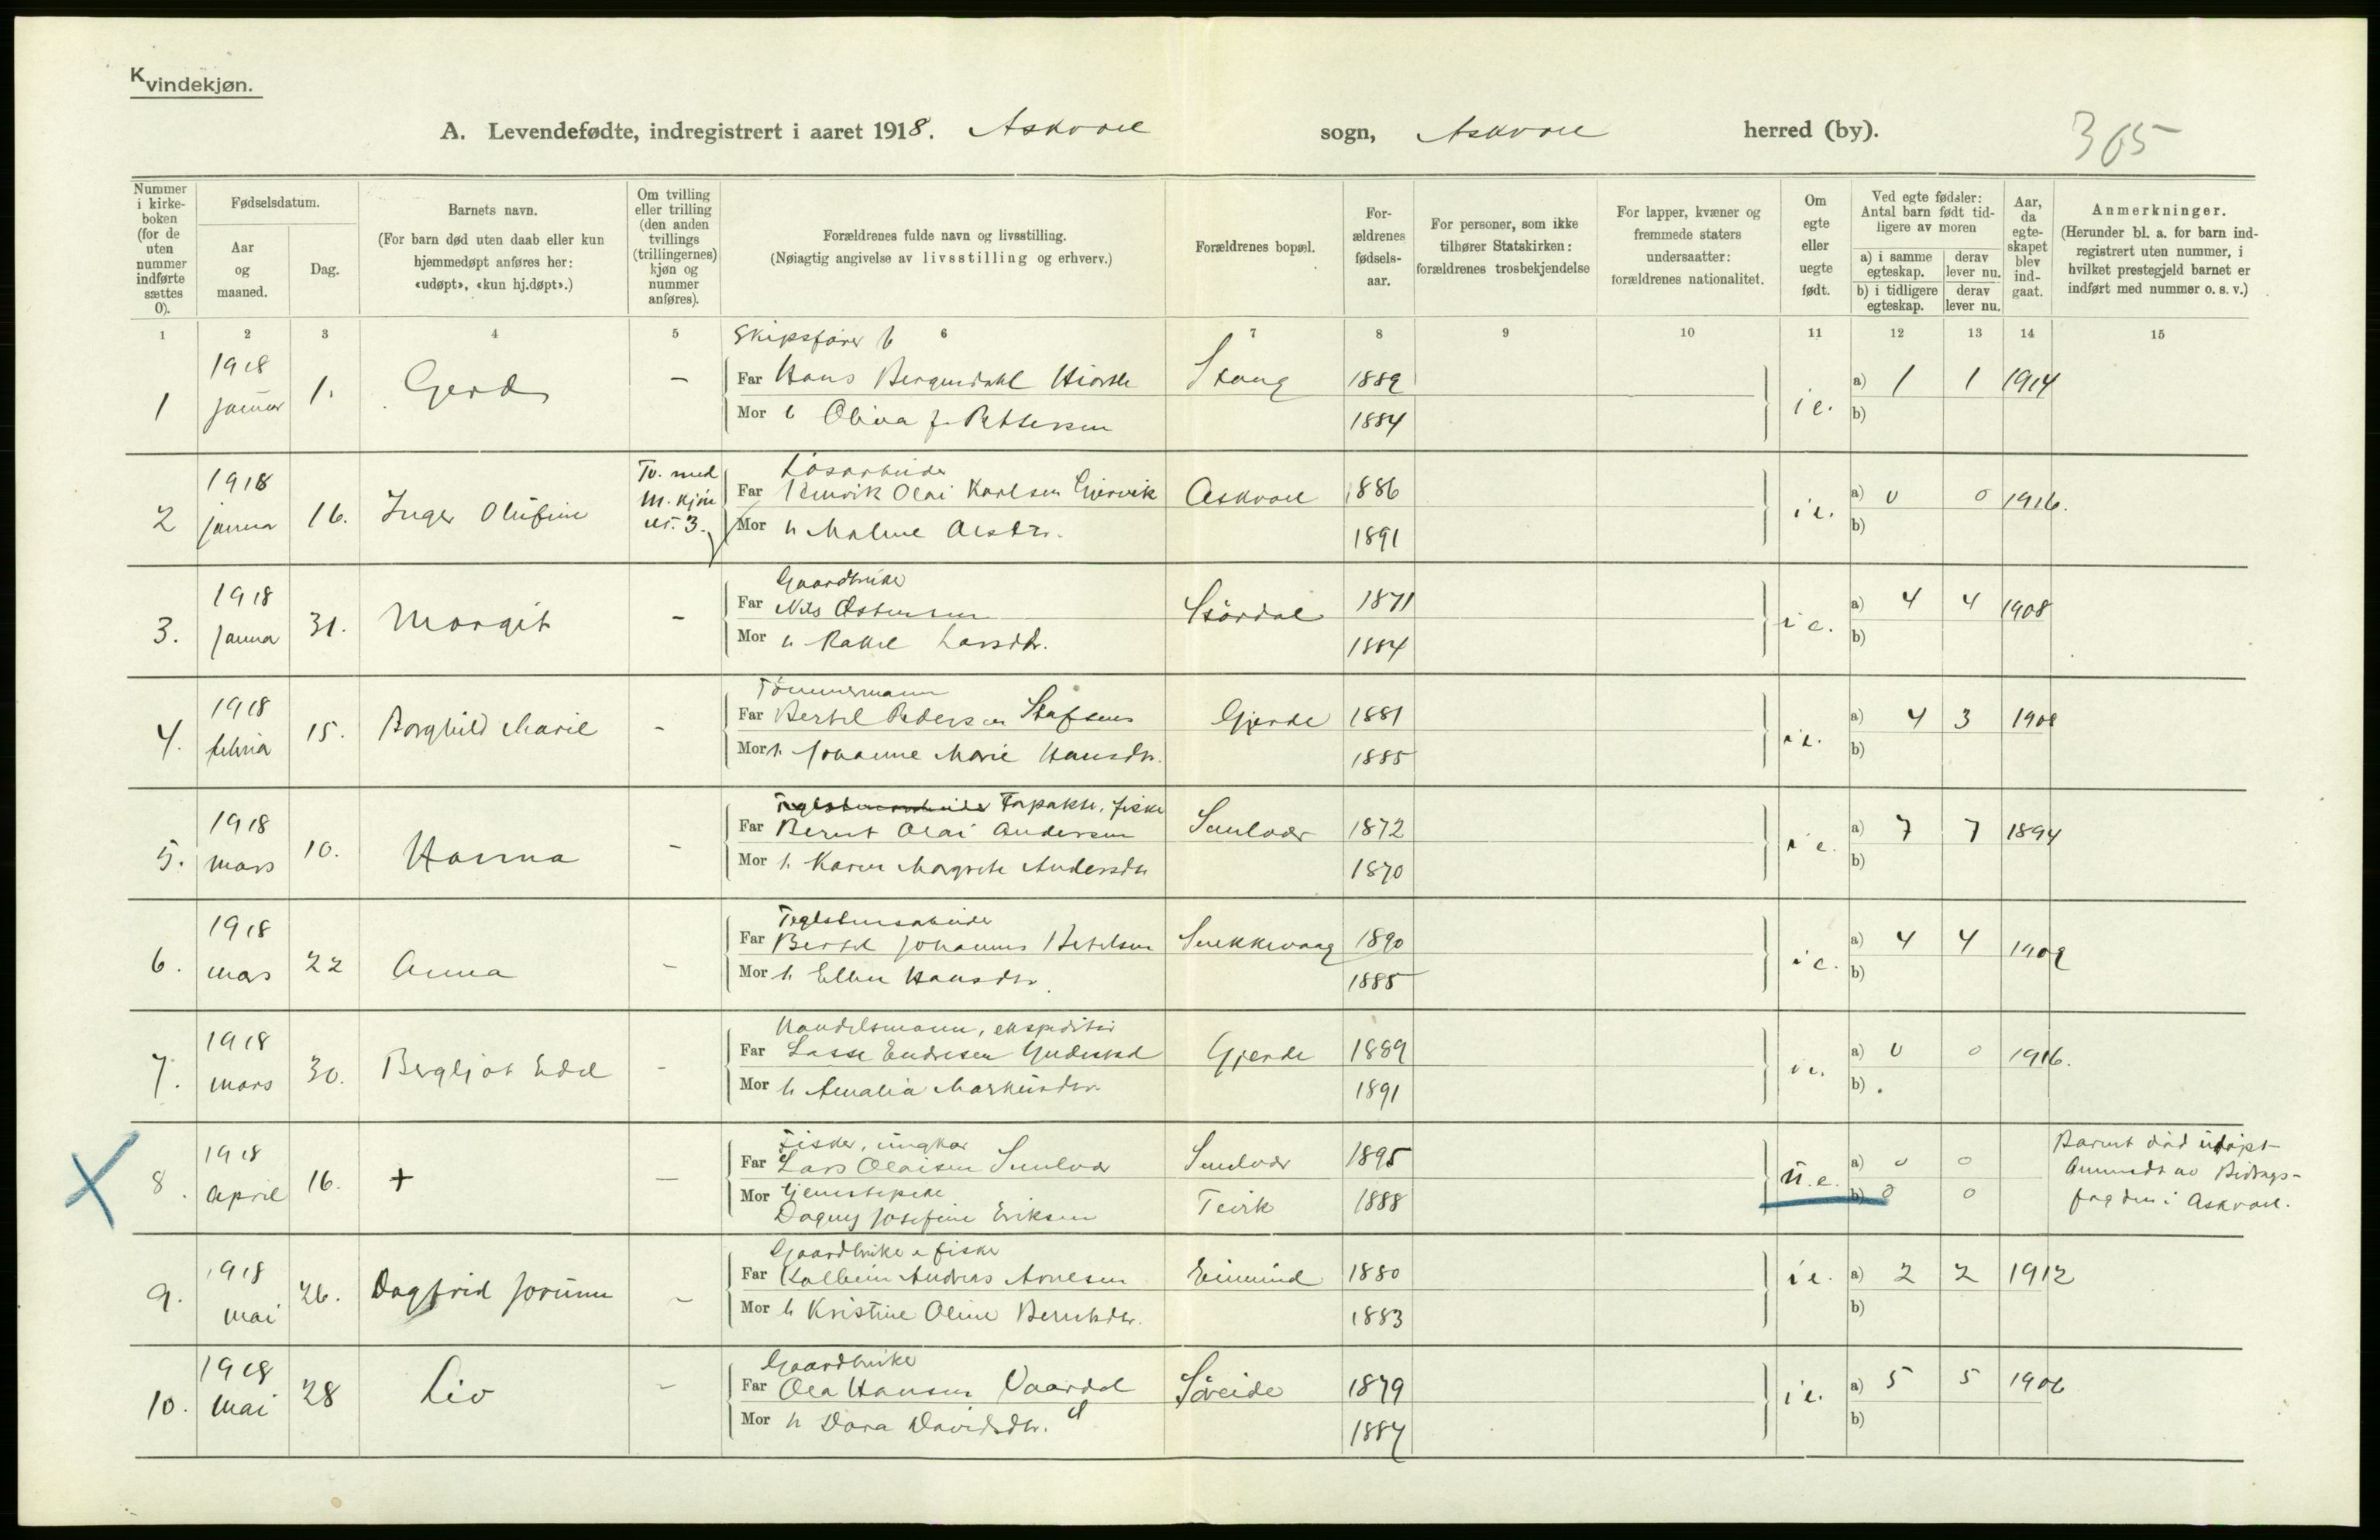 Kvindekjøn.
A. Levendefødte, indregistrert i aaret 1918. Askvoll sogn, Askvoll herred (by).
365
Nummer i kirke-boken (for de uten nummer indførte sættes 0).
Fødselsdatum.
Aar og maaned.
Dag.
Barnets navn.
(For barn død uten daab eller kun hjemmedøpt anføres her: «udøpt», «kun hj.døpt».)
Om tvilling eller trilling (den anden tvillings (trillingernes) kjøn og nummer anføres).
Forældrenes fulde navn og livsstilling.
(Nøiagtig angivelse av livsstilling og erhverv.)
Forældrenes bopæl.
For-ældrenes fødsels-aar.
For personer, som ikke tilhører Statskirken: forældrenes trosbekjendelse
For lapper, kvæner og fremmede staters undersaatter: forældrenes nationalitet.
Om egte eller uegte født.
Ved egte fødsler: Antal barn født tid-ligere av moren
a) i samme egteskap. derav lever nu.
b) i tidligere egteskap. derav lever nu.
Aar, da egte-skapet blev ind-gaat.
Anmerkninger.
(Herunder bl. a. for barn ind-registrert uten nummer, i hvilket prestegjeld barnet er indført med nummer o. s. v.)
1 2 3 4 5 6 7 8 9 10 11 12 13 14 15
Skipsfører
1 1918 januar 1. Gerd - Far Hans Bergendahl Stang 1882 i e. a) 1 1 1914
Mor Oliva J. Pettersen 1884 b)
Løsarbeider
2 1918 januar 16. Inger Olufine Tv. med M. kjøn nr. 3. Far Henrik Olai Karlsen Askvoll 1886 i e. a) 0 0 1916.
Mor h Malene Olsdtr. 1891 b)
Gaardbruker
3. 1918 januar 31. Margit - Far Nils Østensen Stordal 1871 i e. a) 4 4 1908
Mor h. Rakel Larsdtr. 1884 b)
Tømmermann
4. 1918 februar 15. Borghild Marie - Far Bertel Pedersen Gjerde 1881 i e. a) 4 3 1908
Mor h. Johanne Marie Hansdtr. 1885 b)
Forpakter, fisker
5. 1918 mars 10. Hanna - Far Bernt Olai Andersen 1872 i e. a) 7 7 1894
Mor h. Karen Magrete Andersdtr 1870 b)
Teglstensarbeider
6. 1918 mars 22 Anna - Far Bertel Johannes Bertelsen Snekkevaag 1890 i e. a) 4 4 1909
Mor h. Ellen Hansdtr. 1885 b)
Handelsmann, ekspeditør
7. 1918 mars 30. Bergljot Edel - Far Lasse Endresen Gjerde 1889 i e. a) 0 0 1916.
Mor h Amalia Markusdtr. 1891 b)
Fisker, ungkar
8. 1918 april 16. + - Far Lars Olaisen 1895 u. e. a) 0 0 Barnet død udøpt
Mor tjenestepike Dagny Josefine Eriksen Tvirk 1888 b) 0 0 Anmeldt av Bidrags-
fogden i Askvoll.
Gaardbruker & fisker
9. 1918 mai 26. Dagfrid Jorunn - Far Kolbein Andreas Arnesen 1880 i e. a) 2 2 1912
Mor h Kristine Oline Berntsdtr. 1883 b)
Gaardbruker
10. 1918 mai 28 Liv - Far Ola Hansen Vaardal Søreide 1879 i e. a) 5 5 1906
Mor h Dora Davidsdtr. 1884 b)